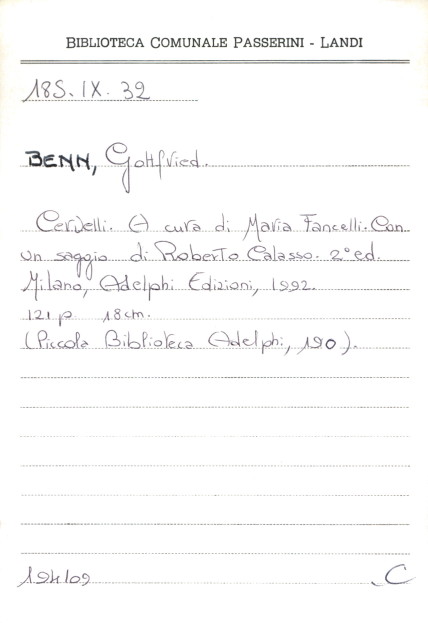 BIBLIOTECA COMUNALE PASSERINI - LANDI
18S. IX. 32
BENN, Gottfried.
Cervelli. A cura di Maria Fancelli. Con
un saggio di Roberto Calasso. 2° ed.
Milano, Adelphi Edizioni, 1992.
121 p 18cm.
(Piccola Biblioteca Adelphi, 190).
194109
C